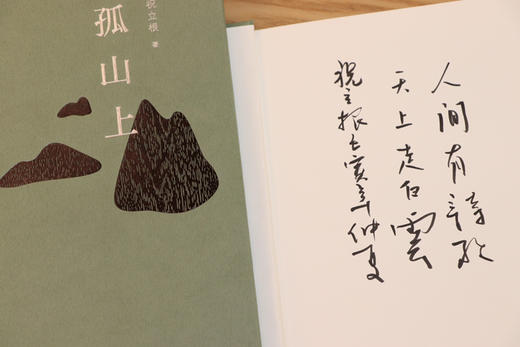 孤山上
祝立根 著
人间有诗歌
天上走白雲
祝立根壬寅年仲夏